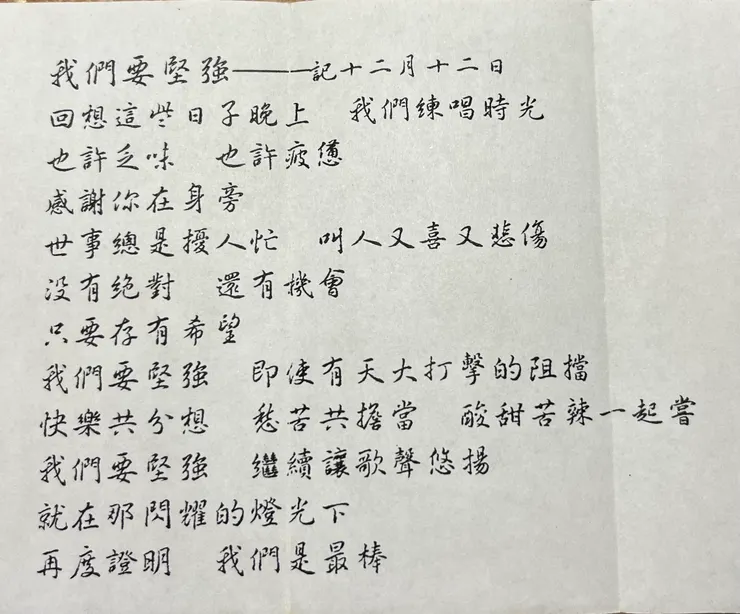 我們要堅強——記十二月十二日
回想這些日子晚上　我們練唱時光
也許乏味　也許疲憊
感謝你在身旁
世事總是擾人忙　叫人又喜又悲傷
沒有絕對　還有機會
只要存有希望
我們要堅強　即使有天大打擊的阻擋
快樂共分想　愁苦共擔當　酸甜苦辣一起嘗
我們要堅強　繼續讓歌聲悠揚
就在那閃耀的燈光下
再度證明　我們是最棒